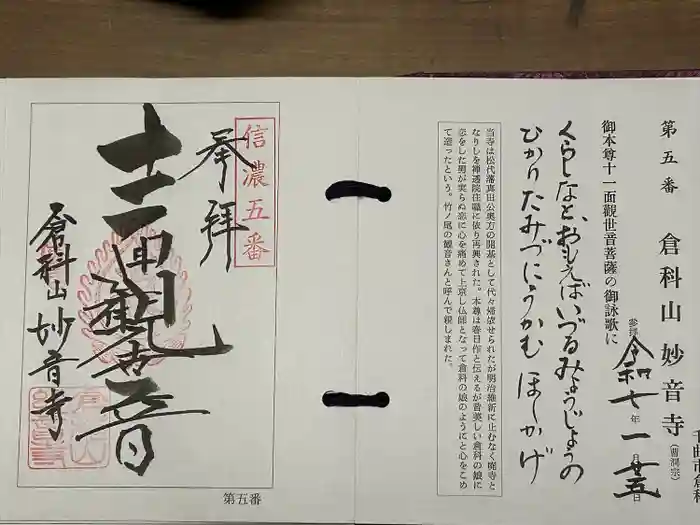 千曲市倉科
第五番　倉科山　妙音寺（曹洞宗）
参拝　令和七年一月廿五日
御本尊十一面觀世音菩薩の御詠歌に
くらしなと、おもえばいづるみょうじょうの
ひかりたみづにうかむ ほしかげ
当寺は松代藩真田公奥方の開基として代々帰依せられたが明治維新に止むなく廃寺と
なりしを禅透院住職に依り再興された。本尊は春日作と伝えるが昔美しい倉科の娘に
恋をした男が実らぬ恋に心を痛めて上京し仏師となって倉科の娘のようにと心をこめ
て造ったという。竹ノ尾の観音さんと呼んで親しまれた。
信濃五番
奉拝
十一面観世音
倉科山 妙音寺
第五番